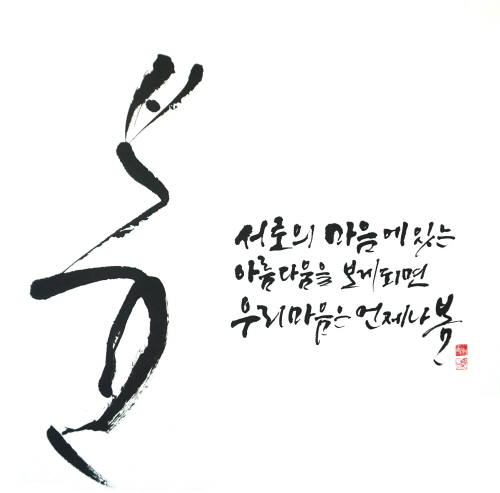 봄
서로의 마음에 있는
아름다움을 보게되면
우리마음은 언제나 봄